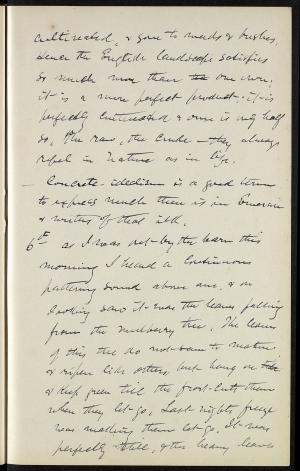 cultivated, & gone to weeds & bushes,
Hence the English landscape satisfies
so much more than the our own.
it is a more perfect product. it is
perfectly cultivated & ours is only half
so, The raw, the crude — they always
repel in Nature as in life.
— Concrete-idealism is a good term
to express much there is in Emerson
& writers of that ilk.
6th as I was out by the barn this
morning I heard a continuous
pattering sound above me, & on
looking saw it was the leaves falling
from the mulberry tree. The leaves
of this tree do not seem to mature
& ripen like others but hang on
& keep green till the frost cuts them
when they let go. Last nights freeze
was making them let go. It was
perfectly still, & the heavy leaves